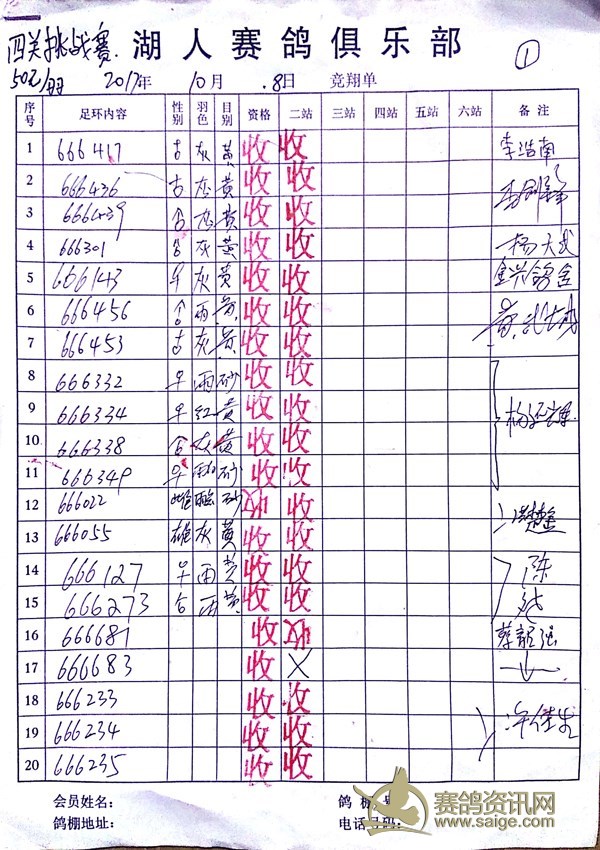 四关挑战赛 湖人赛鸽俱乐部 ①
50元/羽 2017年 10月 8日 竞翔单
序号 足环内容 性别 羽色 目别 资格 二站 三站 四站 五站 六站 备注
1 666417 灰 黄 收 收 李浩南
2 666436 灰 黄 收 收
3 666439 灰 黄 收 收
4 666301 灰 黄 收 收 杨大武
5 666143 灰 黄 收 收 金兴鸽舍
6 666456 雨 黄 收 收
7 666453 灰 黄 收 收
8 666332 雨 砂 收 收
9 666334 红 黄 收 收
10 666338 灰 黄 收 收
11 666349 砂 收 收
12 666022 雄 砂 收 收
13 666055 雄 灰 黄 收 收
14 666127 雨 黄 收 收 陈
15 666273 雨 黄 收 收
16 666681 收 收
17 666683 收 X
18 666233 收 收
19 666234 收 收
20 666235 收 收
会员姓名： 鸽棚号
鸽棚地址： 电话号码：
赛鸽资讯网
www.saige.com